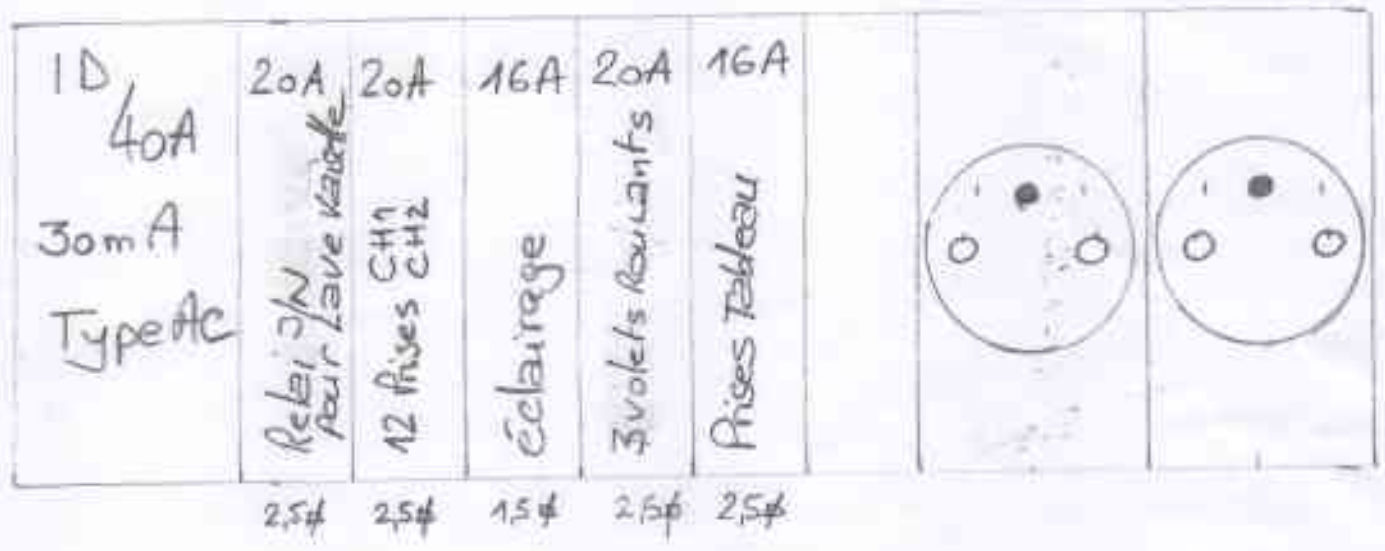 ID
40A
30mA
Type AC
20A
Relai J/N
Pour Lave Vaisselle
2,5⌀
20A
12 Prises CH1
CH2
2,5⌀
16A
éclairage
1,5⌀
20A
3 volets Roulants
2,5⌀
16A
Prises Tableau
2,5⌀